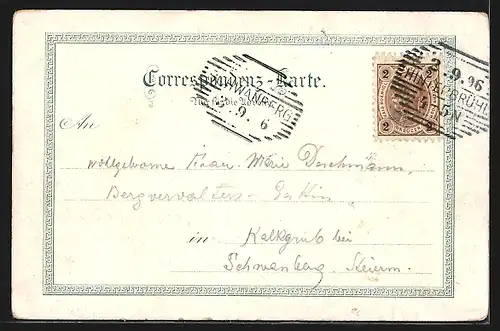 Correspondenz-Karte.
Nur für die Adresse
SCHWANBERG
9 6
2 2
2 2
2.9.96
HINTERBRÜHL
An
wollgeborne Frau Marie
Bergverwalters-Gattin
in Kalkgrub bei
Schwanberg. Steierm.